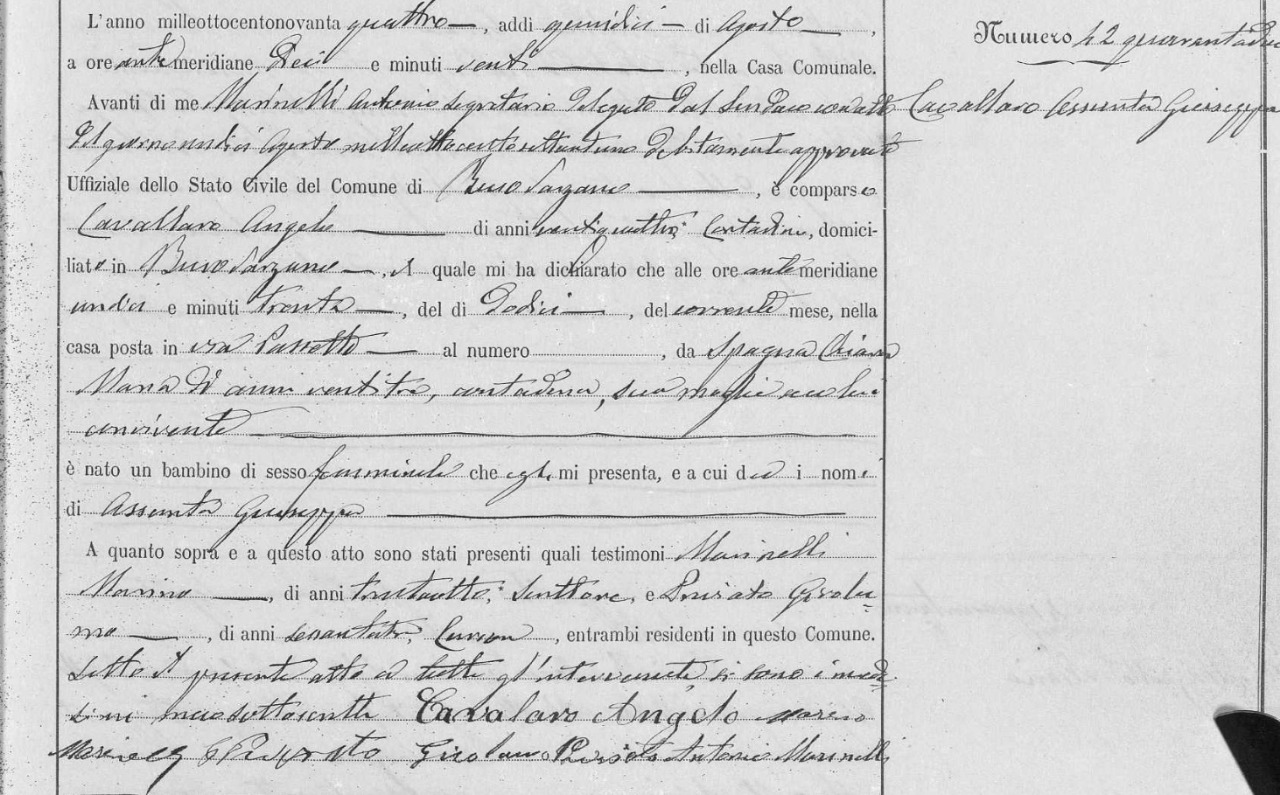 L'anno milleottocentonovanta quattro, addi quindici di Agosto,
a ore ante meridiane Dieci e minuti venti, nella Casa Comunale.
Avanti di me Marinelli Antonio Segretario delegato dal Sindaco con atto
del giorno undici Agosto milleottocentosettantuno debitamente approvato
Uffiziale dello Stato Civile del Comune di Buso Sarzano, è comparso
Cavallaro Angelo di anni ventiquattro, Contadino, domici-
liato in Buso Sarzano, il quale mi ha dichiarato che alle ore ante meridiane
undici e minuti trenta, del di Dodici, del corrente mese, nella
casa posta in via Passetto al numero, da Spagna Chiara
Maria di anni ventitre, contadina, sua moglie seco lui
convivente
è nato un bambino di sesso femminile che egli mi presenta, e a cui dà i nomi
di Assunta Giuseppa
A quanto sopra e a questo atto sono stati presenti quali testimoni Marinelli
Marino, di anni trentaotto, Scrittore, e Girola-
mo, di anni, entrambi residenti in questo Comune.
Letto il presente atto a tutti gl'intervenuti, si sono i mede-
simi meco sottoscritti Cavalaro Angelo Marino
Marinelli Girolamo Antonio Marinelli
Numero 42 quarantadue
Cavallaro Assunta Giuseppa